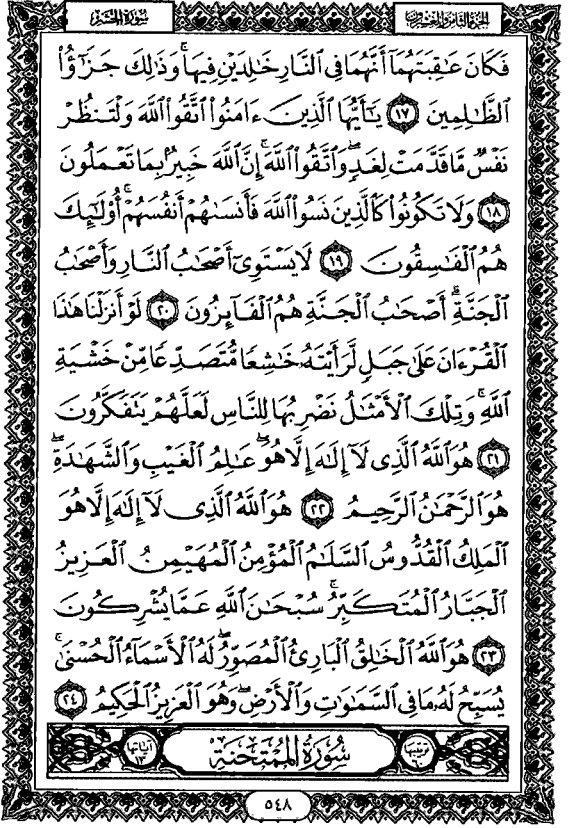 الجزء الثامن والعشرون سورة الحشر
فَكَانَ عَٰقِبَتَهُمَآ أَنَّهُمَا فِي ٱلنَّارِ خَٰلِدَيْنِ فِيهَا ۚ وَذَٰلِكَ جَزَٰٓؤُا۟
ٱلظَّٰلِمِينَ ١٧ يَٰٓأَيُّهَا ٱلَّذِينَ ءَامَنُوا۟ ٱتَّقُوا۟ ٱللَّهَ وَلْتَنظُرْ
نَفْسٌ مَّا قَدَّمَتْ لِغَدٍ ۖ وَٱتَّقُوا۟ ٱللَّهَ ۚ إِنَّ ٱللَّهَ خَبِيرٌۢ بِمَا تَعْمَلُونَ
١٨ وَلَا تَكُونُوا۟ كَٱلَّذِينَ نَسُوا۟ ٱللَّهَ فَأَنسَىٰهُمْ أَنفُسَهُمْ ۚ أُو۟لَٰٓئِكَ
هُمُ ٱلْفَٰسِقُونَ ١٩ لَا يَسْتَوِىٓ أَصْحَٰبُ ٱلنَّارِ وَأَصْحَٰبُ
ٱلْجَنَّةِ ۚ أَصْحَٰبُ ٱلْجَنَّةِ هُمُ ٱلْفَآئِزُونَ ٢٠ لَوْ أَنزَلْنَا هَٰذَا
ٱلْقُرْءَانَ عَلَىٰ جَبَلٍ لَّرَأَيْتَهُۥ خَٰشِعًا مُّتَصَدِّعًا مِّنْ خَشْيَةِ
ٱللَّهِ ۚ وَتِلْكَ ٱلْأَمْثَٰلُ نَضْرِبُهَا لِلنَّاسِ لَعَلَّهُمْ يَتَفَكَّرُونَ
٢١ هُوَ ٱللَّهُ ٱلَّذِى لَآ إِلَٰهَ إِلَّا هُوَ ۖ عَٰلِمُ ٱلْغَيْبِ وَٱلشَّهَٰدَةِ ۖ
هُوَ ٱلرَّحْمَٰنُ ٱلرَّحِيمُ ٢٢ هُوَ ٱللَّهُ ٱلَّذِى لَآ إِلَٰهَ إِلَّا هُوَ
ٱلْمَلِكُ ٱلْقُدُّوسُ ٱلسَّلَٰمُ ٱلْمُؤْمِنُ ٱلْمُهَيْمِنُ ٱلْعَزِيزُ
ٱلْجَبَّارُ ٱلْمُتَكَبِّرُ ۚ سُبْحَٰنَ ٱللَّهِ عَمَّا يُشْرِكُونَ
٢٣ هُوَ ٱللَّهُ ٱلْخَٰلِقُ ٱلْبَارِئُ ٱلْمُصَوِّرُ ۖ لَهُ ٱلْأَسْمَآءُ ٱلْحُسْنَىٰ ۚ
يُسَبِّحُ لَهُۥ مَا فِى ٱلسَّمَٰوَٰتِ وَٱلْأَرْضِ ۖ وَهُوَ ٱلْعَزِيزُ ٱلْحَكِيمُ ٢٤
ترتيبها سُورَةُ المُمْتَحنَةِ آياتها ١٣
٥٤٨